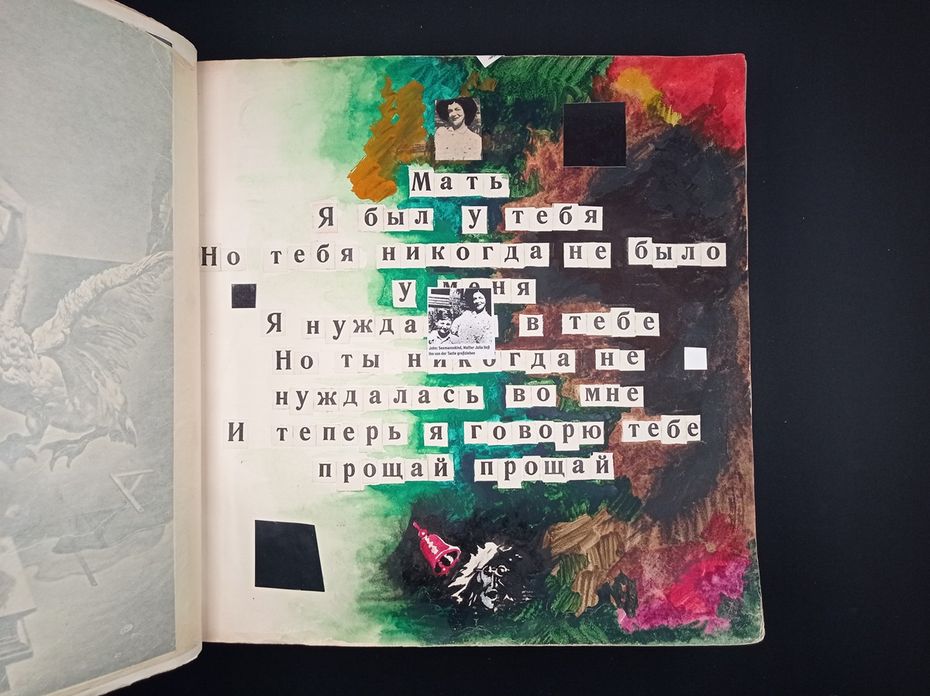 Мать
Я был у тебя
Но тебя никогда не было
у меня
Я нужда в тебе
Но ты никогда не
John: Seemannskind, Mutter Julia ließ
ihn von der Tante großziehen
нуждалась во мне
И теперь я говорю тебе
прощай прощай